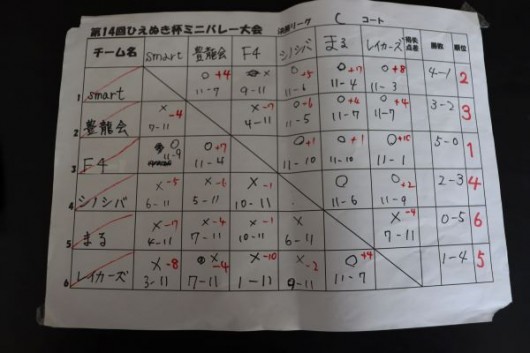 第14回ひえぬき杯ミニバレー大会 決勝リーグ C コート
チーム名 smart 豊龍会 F4 シノシバ まる レイカーズ 得失点差 勝敗 順位
1 smart ○ +4 11-7 × 9-11 ○ +5 11-6 ○ +7 11-4 ○ +8 11-3 4-1 2
2 豊龍会 × -4 7-11 × -7 4-11 ○ -6 11-5 ○ +4 11-7 ○ +4 11-7 3-2 3
3 F4 ○ 11-9 ○ +7 11-4 ○ +1 11-10 ○ +1 11-10 ○ +10 11-1 5-0 1
4 シノシバ × -5 6-11 × -6 5-11 × -1 10-11 ○ 11-6 ○ +2 11-9 2-3 4
5 まる × -7 4-11 × -4 7-11 × -1 10-11 × 6-11 × -4 7-11 0-5 6
6 レイカーズ × -8 3-11 × -4 7-11 × -10 1-11 × -2 9-11 ○ +4 11-7 1-4 5